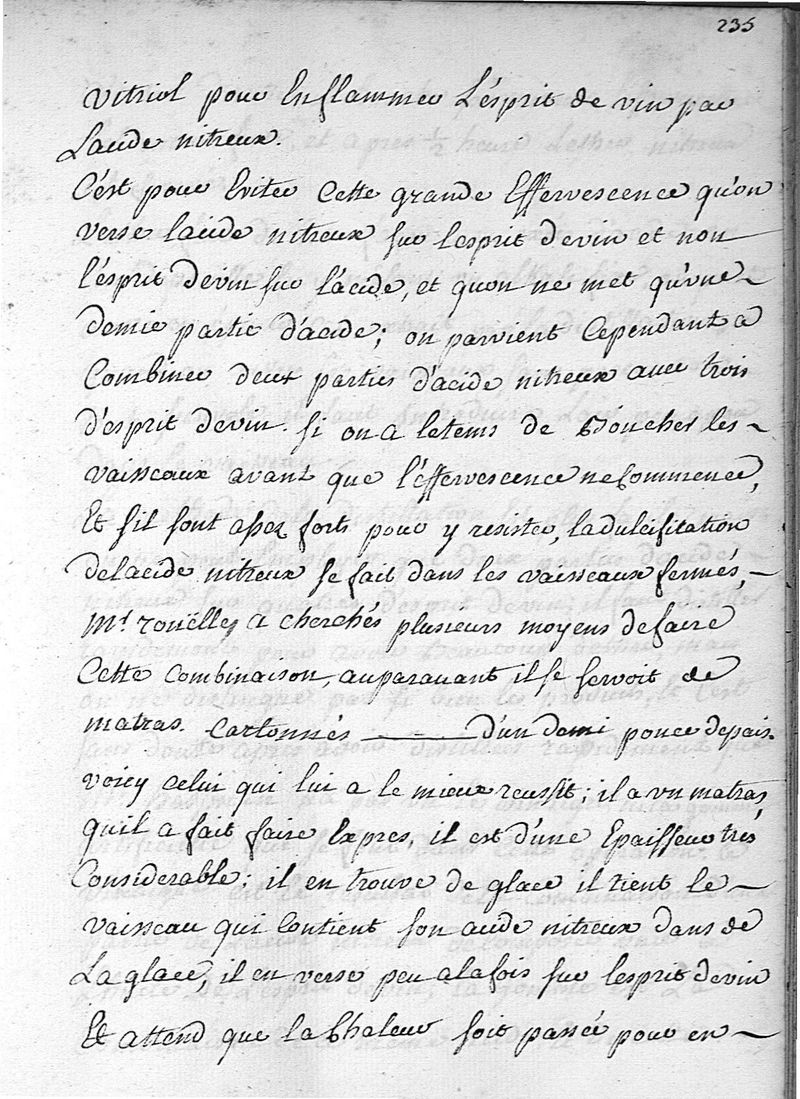 235
vitriol pour Enflammer L'ésprit de vin par
Lacide nitreux.
C'ést pour Eviter Cette grande Effervescence qu'on
verse lacide nitreux sur lesprit devin et non
l'ésprit devin sur l'ácide, et quon ne met qu'vne
demie partie d'acide; on parvient Cependant a
Combiner deux parties d'acide nitreux avec trois
d'ésprit devin. si on a letems de Boucher les
vaisseaux avant que l'éffervescence ne Commence,
Et s'il sont assez forts pour y resister, la dulcification
delacide nitreux se fait dans les vaisseaux fermés,
Mr. roüelley a cherchés plusieurs moyens de faire
Cette Combinaison, auparavant il se servoit de
matras. Cartonnés d'un demi pouce depais.
voicy celui qui lui a le mieux reussit; il a vn matras
qu'il a fait faire Expres, il est d'une Epaisseur très
Considerable; il en trouve de glace il tient le
vaisseau qui Contient son acide nitreux dans de
La glace, il en verse peu alafois sur lesprit devin
Et attend que la Chaleur soit passée pour en